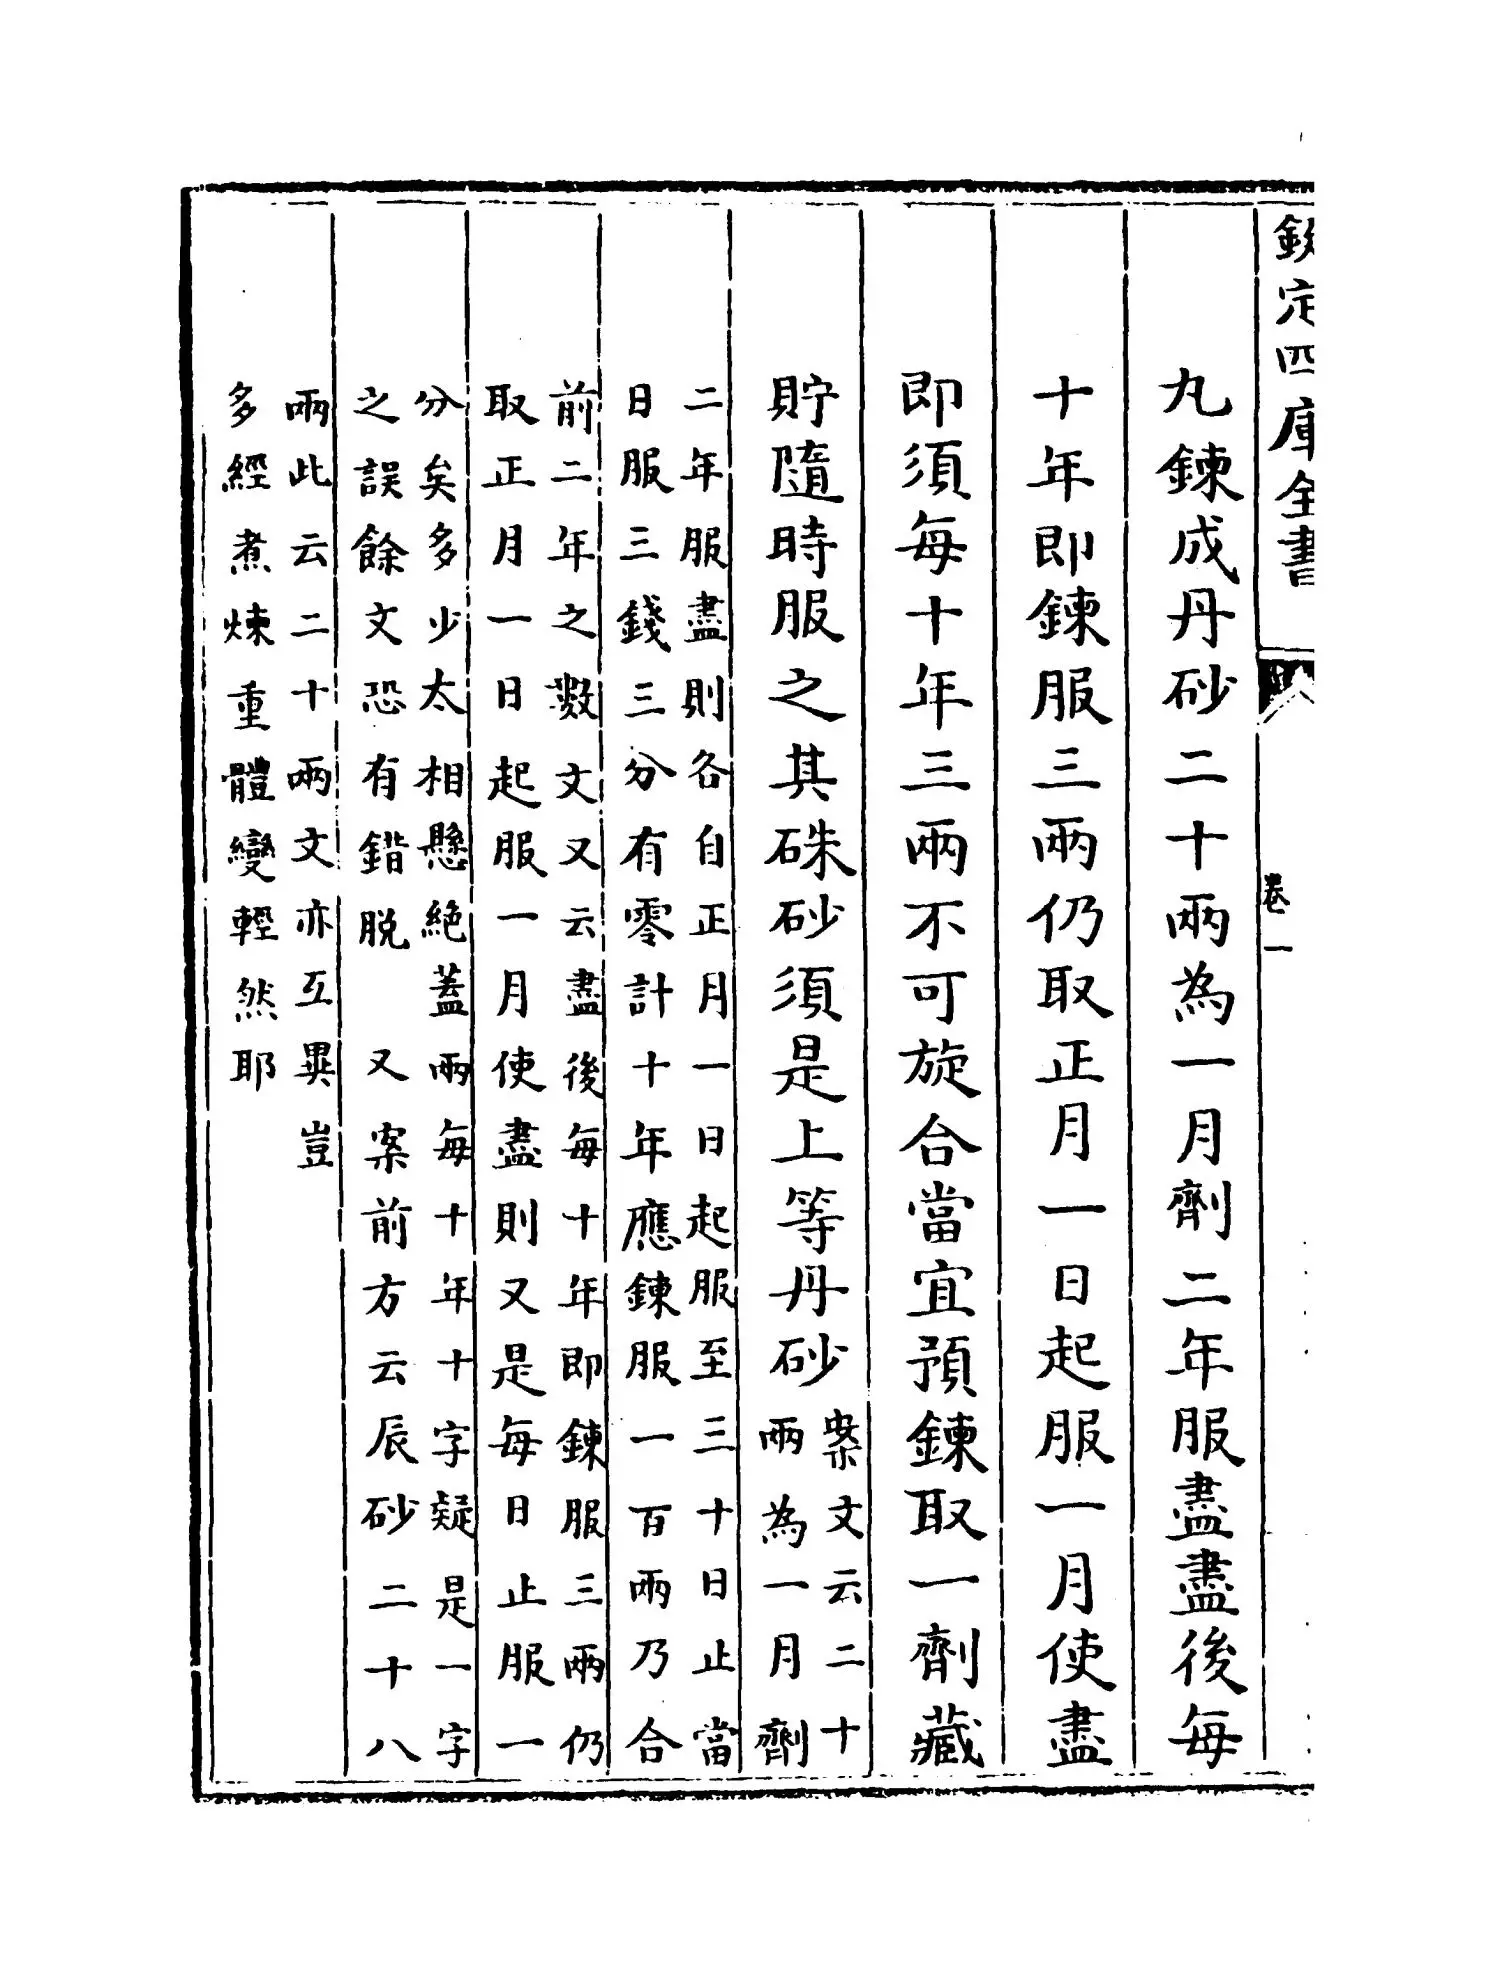 欽定四庫全書
卷一
丸鍊成丹砂二十兩為一月劑二年服盡盡後每
十年即鍊服三兩仍取正月一日起服一月使盡
即須每十年三兩不可旋合當宜預鍊取一劑藏
貯隨時服之其硃砂須是上等丹砂
案文云二十
兩為一月劑
二年服盡則各自正月一日起服至三十日止當
日服三錢三分有零計十年應鍊服一百兩乃合
前二年之數文又云盡後每十年即鍊服三兩仍
取正月一日起服一月使盡則又是每日止服一
分矣多少太相懸絶蓋兩每十年十字疑是一字
之誤餘文恐有錯脱　又案前方云辰砂二十八
兩此云二十兩文亦互異豈
多經煮煉重體變輕然耶